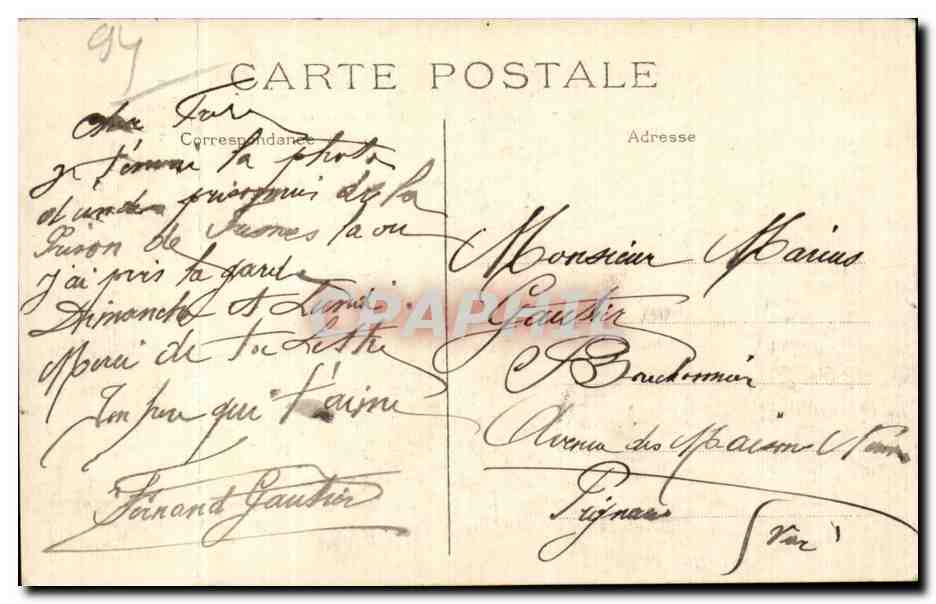 94
CARTE POSTALE
Correspondance
Adresse
Cher Frère
je t'envoie la photo
d'un des prisonniers de la
Prison de Nimes la ou
j'ai pris la garde
Dimanche et Lundi.
Merci de ta Lettre
Ton frere qui t'aime
Fernand Gautier
Monsieur Marius
Gautier
Bouchonnier
Avenue des Maisons Neuves
Pignans
(Var)
CRAPHIL